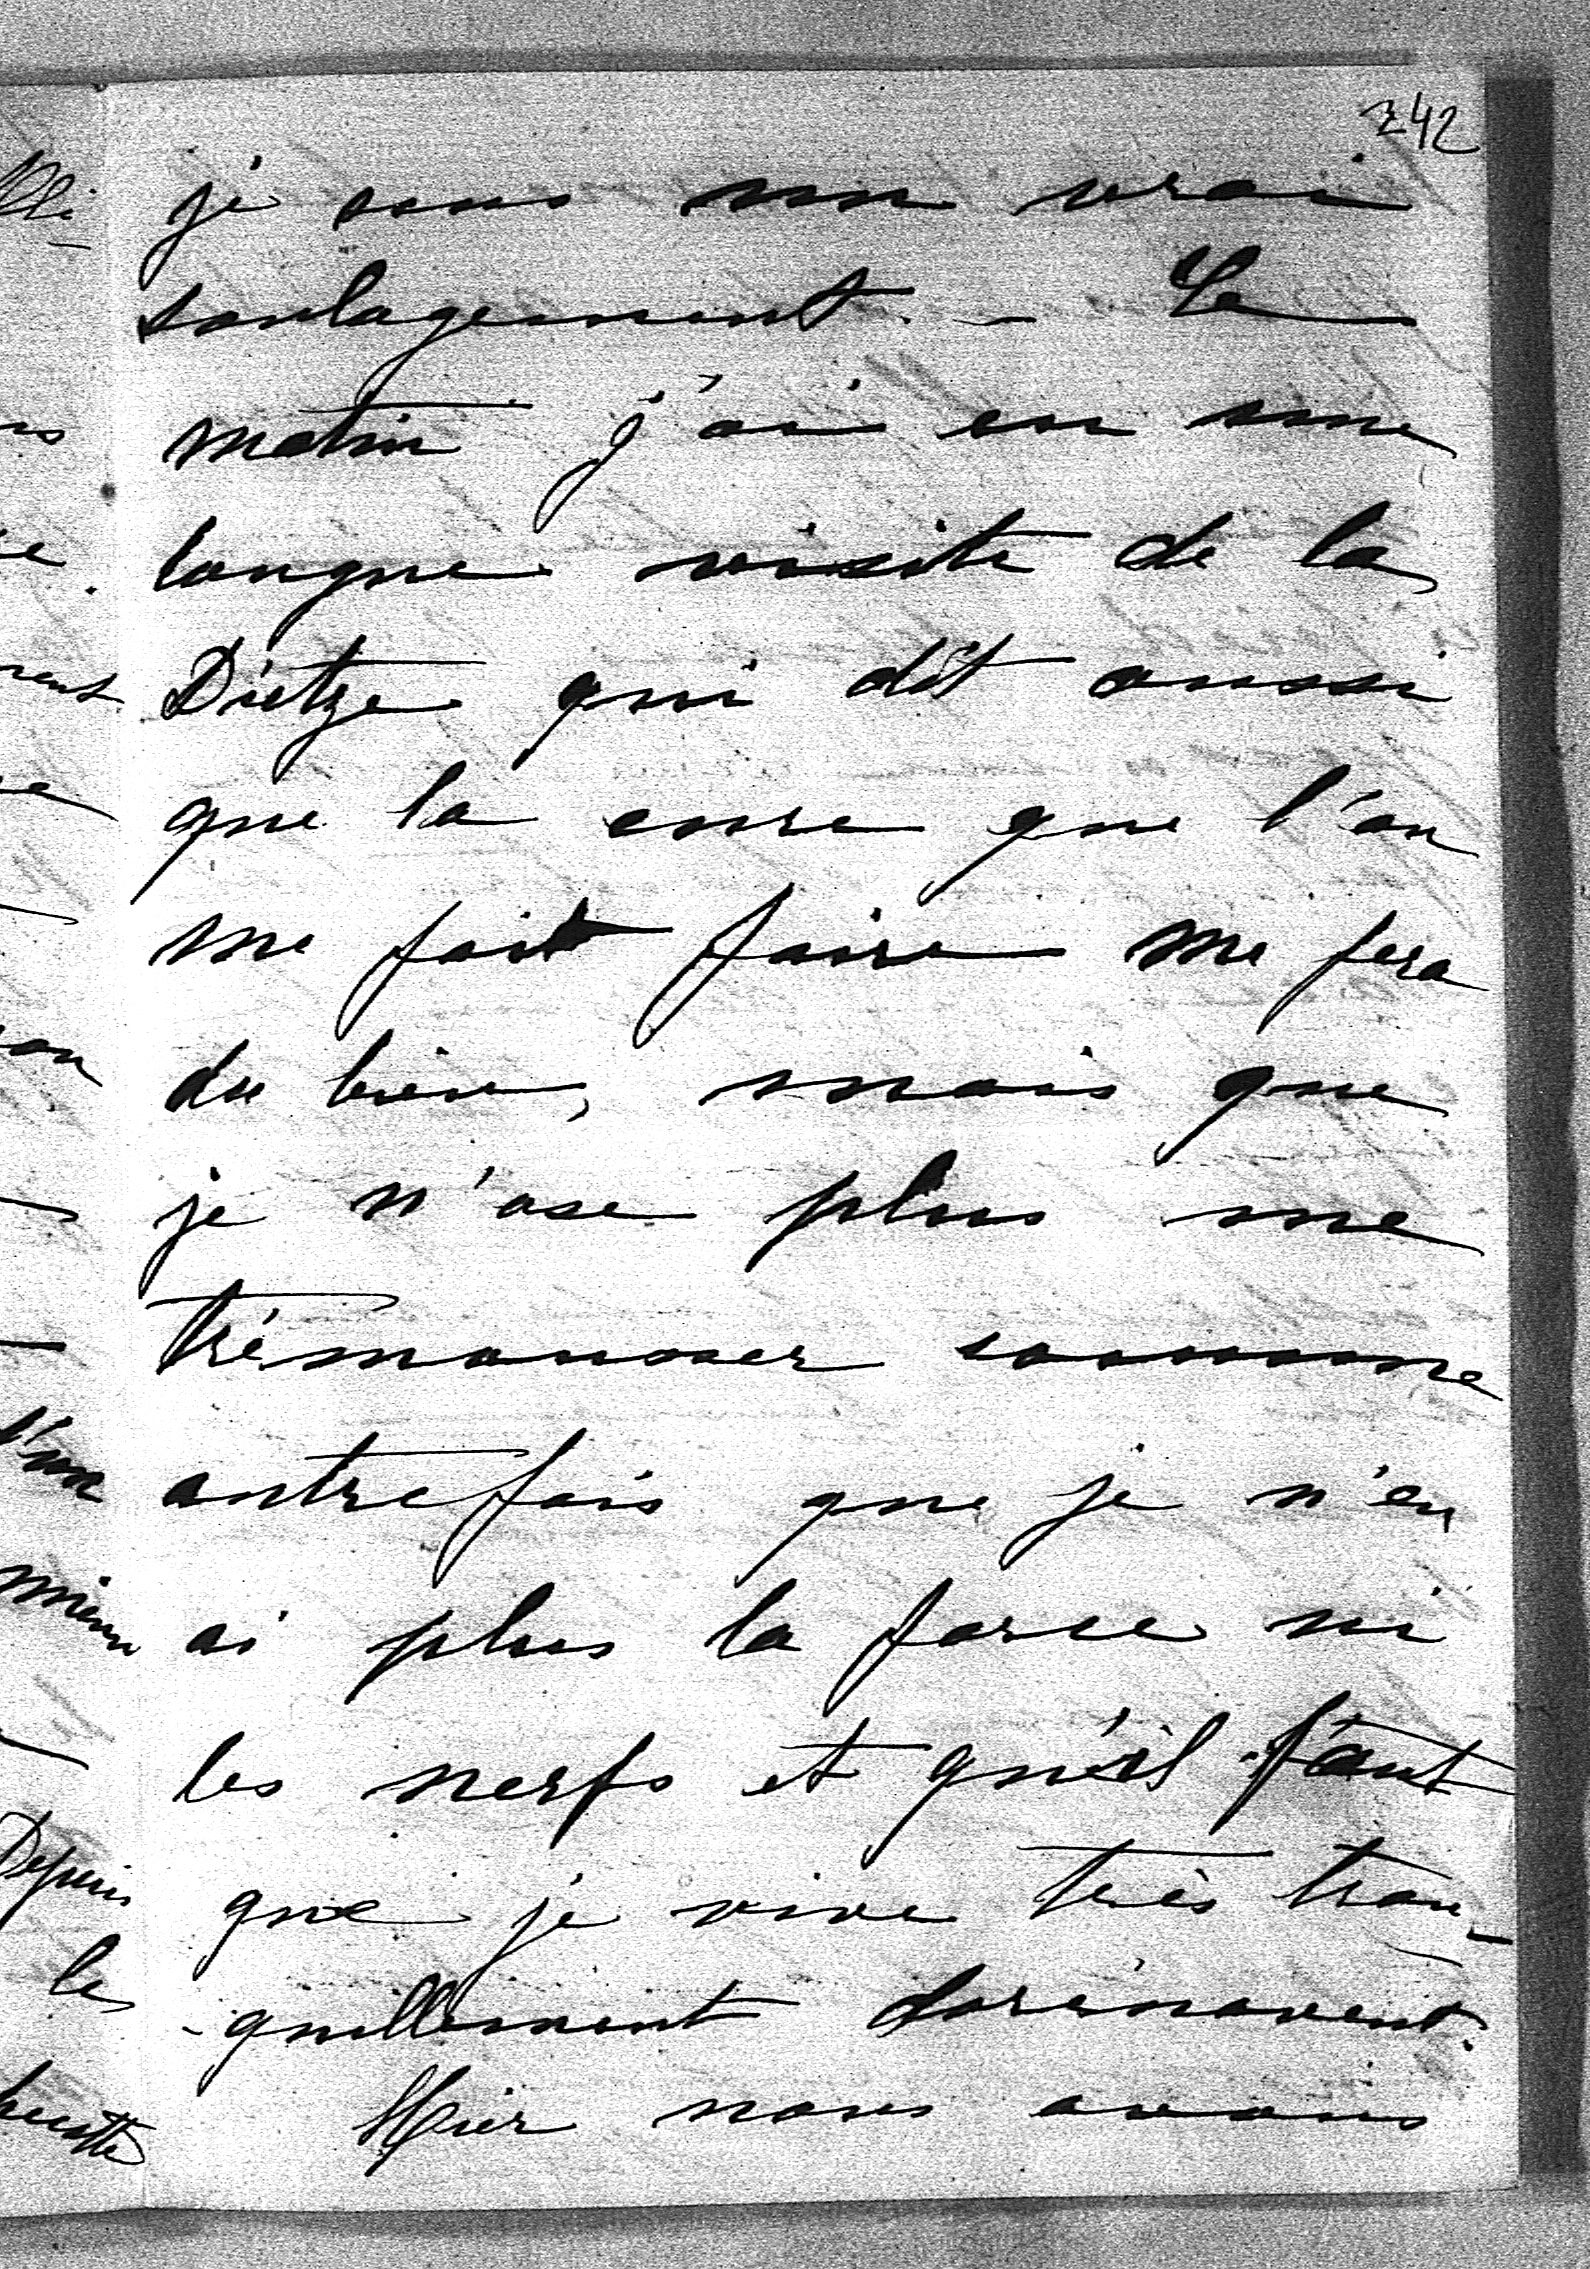 242
je sens un vrai
soulagement. - Le
matin j'ai eu une
longue visite de la
Dietze qui dit aussi
que la cure que l'on
me fait faire me fera
du bien, mais que
je n'ose plus me
trémousser comme
autrefois que je n'en
ai plus la force ni
les nerfs et qu'il faut
que je vive très tran-
-quillement dorénavant.
Hier nous avons